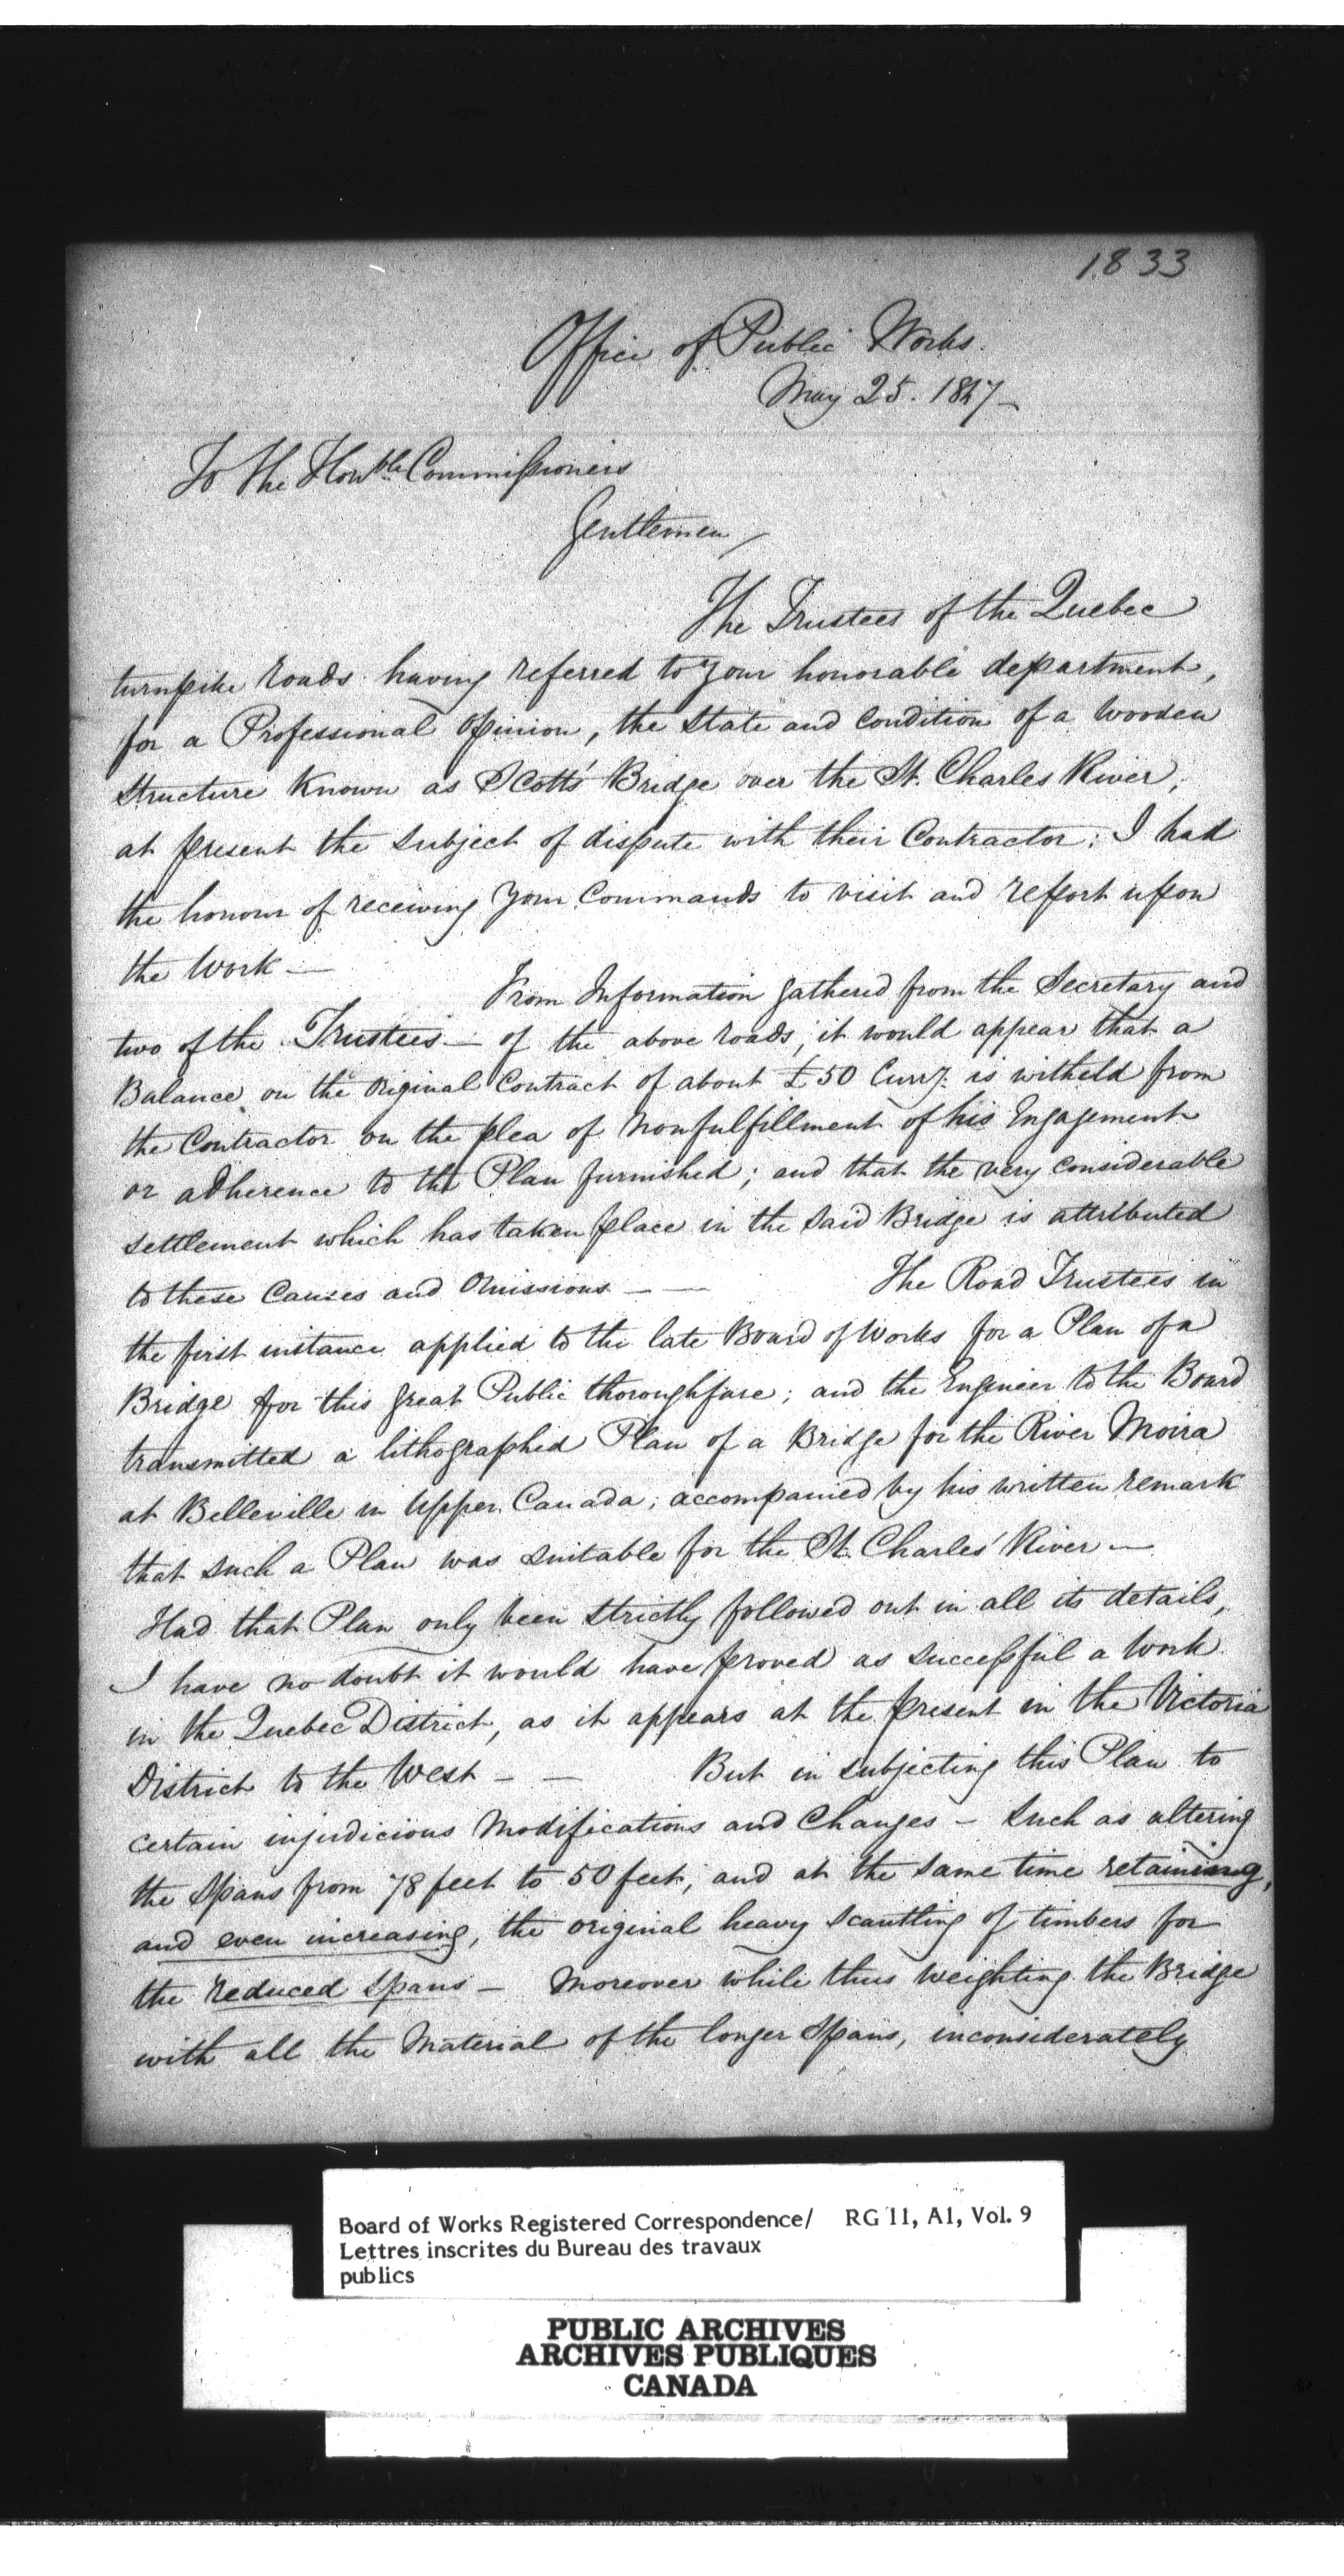 1833
Office of Public Works.
May 25. 1847—
To the Honble. Commissioners
Gentlemen,
The Trustees of the Quebec
turnpike roads having referred to your honorable department,
for a Professional Opinion, the State and Condition of a Wooden
Structure Known as Scotts' Bridge over the St. Charles River,
at present the subject of dispute with their Contractor; I had
the honour of receiving your Commands to visit and report upon
the Work —
From Information gathered from the Secretary and
two of the Trustees — of the above roads, it would appear that a
Balance on the original Contract of about £50 Curry. is witheld from
the Contractor on the plea of Nonfulfillment of his Engagement
or adherence to the Plan furnished; and that the very considerable
settlement which has taken place in the said Bridge is attributed
to these Causes and Omissions — — The Road Trustees in
the first instance applied to the late Board of Works for a Plan of a
Bridge for this great Public thoroughfare; and the Engineer to the Board
transmitted a lithographed Plan of a Bridge for the River Moira
at Belleville in Upper Canada; accompanied by his written remark
that such a Plan was suitable for the St. Charles River —
Had that Plan only been strictly followed out in all its details,
I have no doubt it would have proved as successful a Work
in the Quebec District, as it appears at the present in the Victoria
District to the West — — But in subjecting this Plan to
certain injudicious Modifications and Changes — Such as altering
the Spans from 78 feet to 50 feet, and at the same time retaining,
and even increasing, the original heavy Scantling of timbers for
the reduced Spans — Moreover while thus weighting the Bridge
with all the Material of the longer Spans, inconsiderately
Board of Works Registered Correspondence/ RG 11, A1, Vol. 9
Lettres inscrites du Bureau des travaux
publics
PUBLIC ARCHIVES
ARCHIVES PUBLIQUES
CANADA